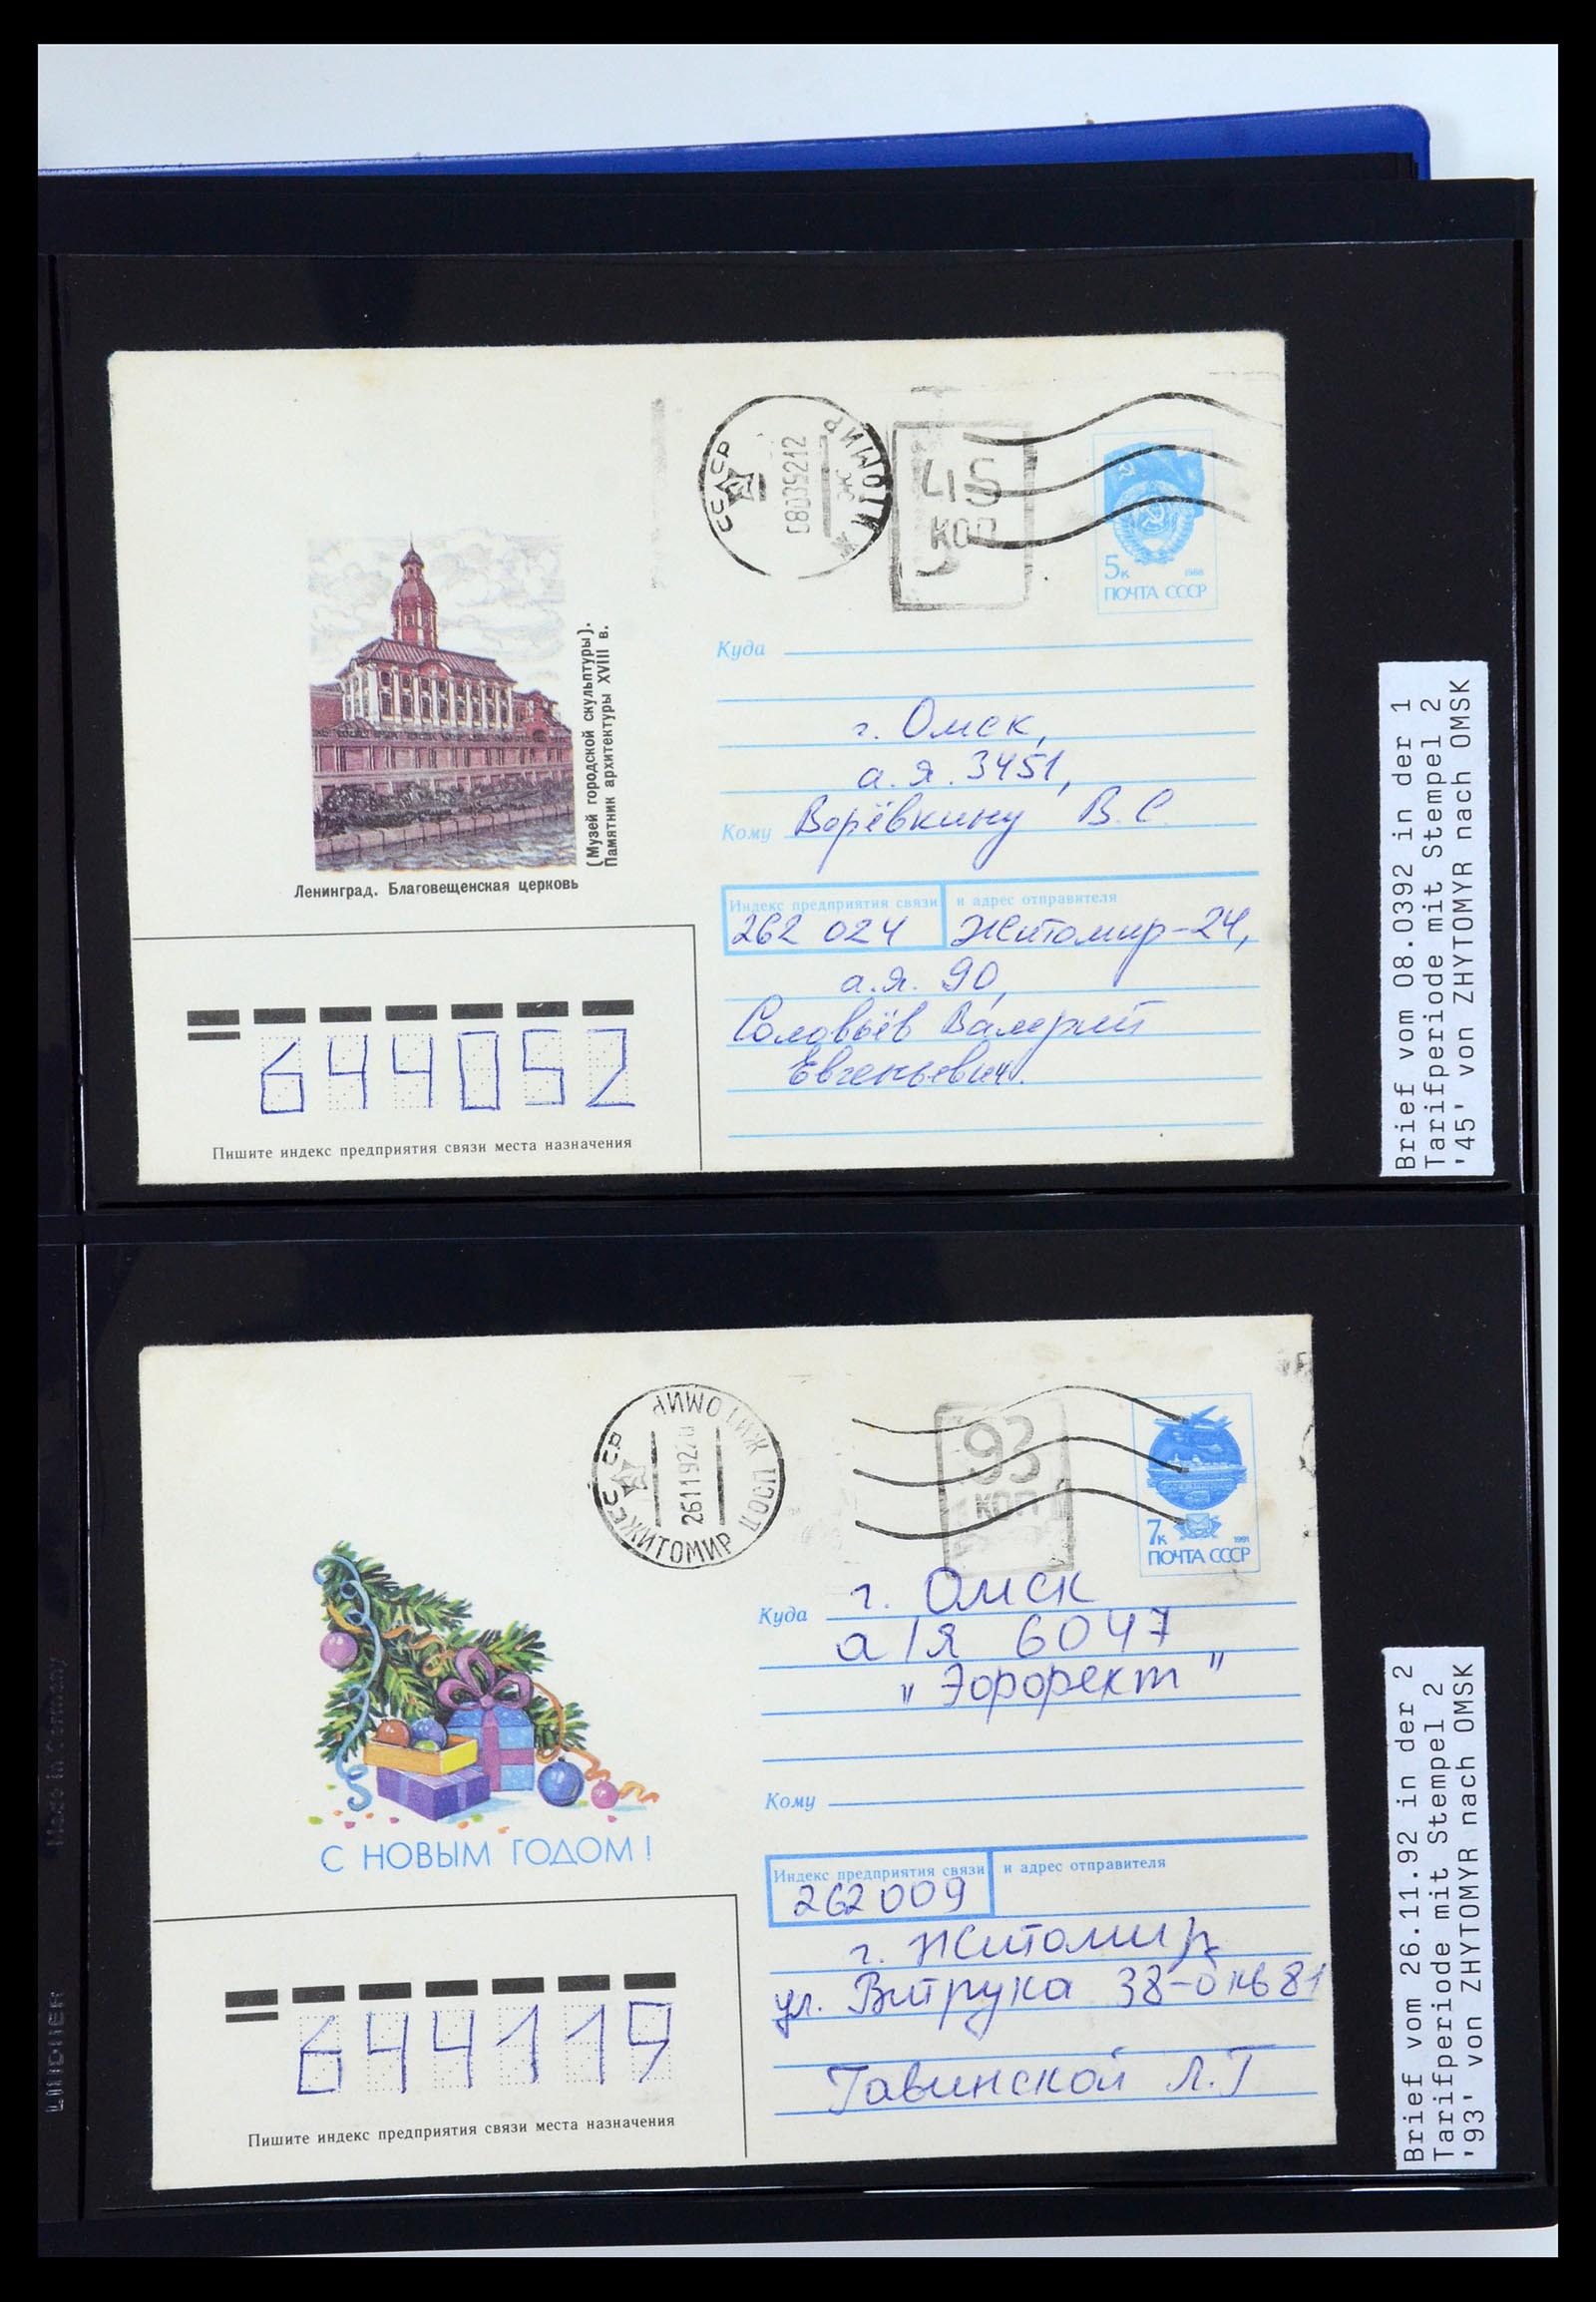 СССР
08039212
ЖИТОМИР
45
КОП
5к
1988
ПОЧТА СССР
(Музей городской скульптуры).
Памятник архитектуры XVIII в.
Ленинград. Благовещенская церковь
Куда
г. Омск,
а.я. 3451,
Кому Верёвкину В.С.
Индекс предприятия связи и адрес отправителя
262 024 Житомир-24,
а.я. 90,
Соловьёв Валерий
Евгеньевич.
644052
Пишите индекс предприятия связи места назначения
Brief vom 08.0392 in der 1
Tarifperiode mit Stempel 2
'45' von ZHYTOMYR nach OMSK
СССР
ЖИТОМИР ПОСП
261192
ЖИТОМИР
93
КОП
7к
1991
ПОЧТА СССР
Куда г. Омск
а/я 6047
"Эфорект"
Кому
С НОВЫМ ГОДОМ!
Индекс предприятия связи и адрес отправителя
262009
г. Житомир
ул. Витрука 38-б кв 81
Тавинской Л.Г
644119
Пишите индекс предприятия связи места назначения
Brief vom 26.11.92 in der 2
Tarifperiode mit Stempel 2
'93' von ZHYTOMYR nach OMSK
Made in Germany
LINDNER